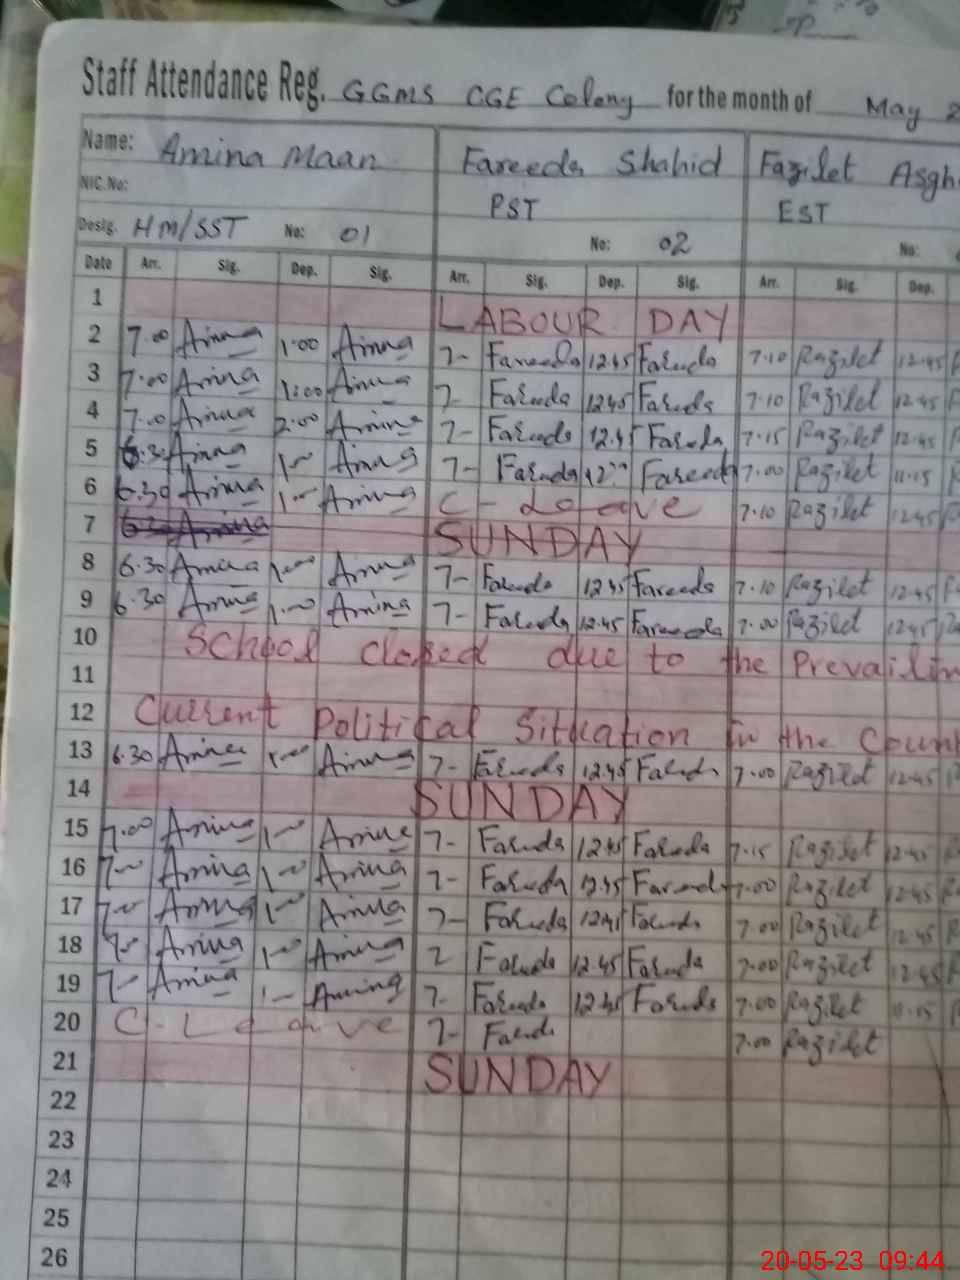 Staff Attendance Reg. GGMS CGE Colony for the month of May 2
Name: Amina Maan Fareeda Shahid Fazilet Asgh
NIC.No: PST EST
Desig. HM/SST No: 01 No: 02 No:
Date Arr. Sig. Dep. Sig. Arr. Sig. Dep. Sig. Arr. Sig. Dep.
1 LABOUR DAY
2 7.00 Amina 1.00 Amina 7- Fareeda 12.45 Fareeda 7.10 Fazilet 12.45
3 7.00 Amina 1:00 Amina 7- Fareeda 12.45 Fareeda 7.10 Fazilet 12.45
4 7.00 Amina 2.00 Amina 7- Fareeda 12.45 Fareeda 7.15 Fazilet 12.45
5 6.30 Amina 1- Amina 7- Fareeda 12 Fareeda 7.00 Fazilet 11.15
6 6.30 Amina 1- Amina C-Leave 7.10 Fazilet 12.45
7 Amina SUNDAY
8 6.30 Amina 1.00 Amina 7- Fareeda 12.45 Fareeda 7.10 Fazilet 12.45
9 6.30 Amina 1.00 Amina 7- Fareeda 12.45 Fareeda 7.00 Fazilet 12.45
10 School closed due to the Prevailin
11
12 Current Political Situation in the Count
13 6.30 Amina 1.00 Amina 7- Fareeda 12.45 Fareeda 7.00 Fazilet 12.45
14 SUNDAY
15 7.00 Amina 1- Amina 7- Fareeda 12.45 Fareeda 7.15 Fazilet 12.45
16 7- Amina 1- Amina 7- Fareeda 12.45 Fareeda 7.00 Fazilet 12.45
17 7- Amina 1- Amina 7- Fareeda 12.45 Fareeda 7.00 Fazilet 12.45
18 7- Amina 1- Amina 7 Fareeda 12.45 Fareeda 7.00 Fazilet 12.45
19 7- Amina 1- Amina 7- Fareeda 12.45 Fareeda 7.00 Fazilet 11.15
20 C-Leave 7- Fareeda 7.00 Fazilet
21 SUNDAY
22
23
24
25
26
20-05-23 09:44